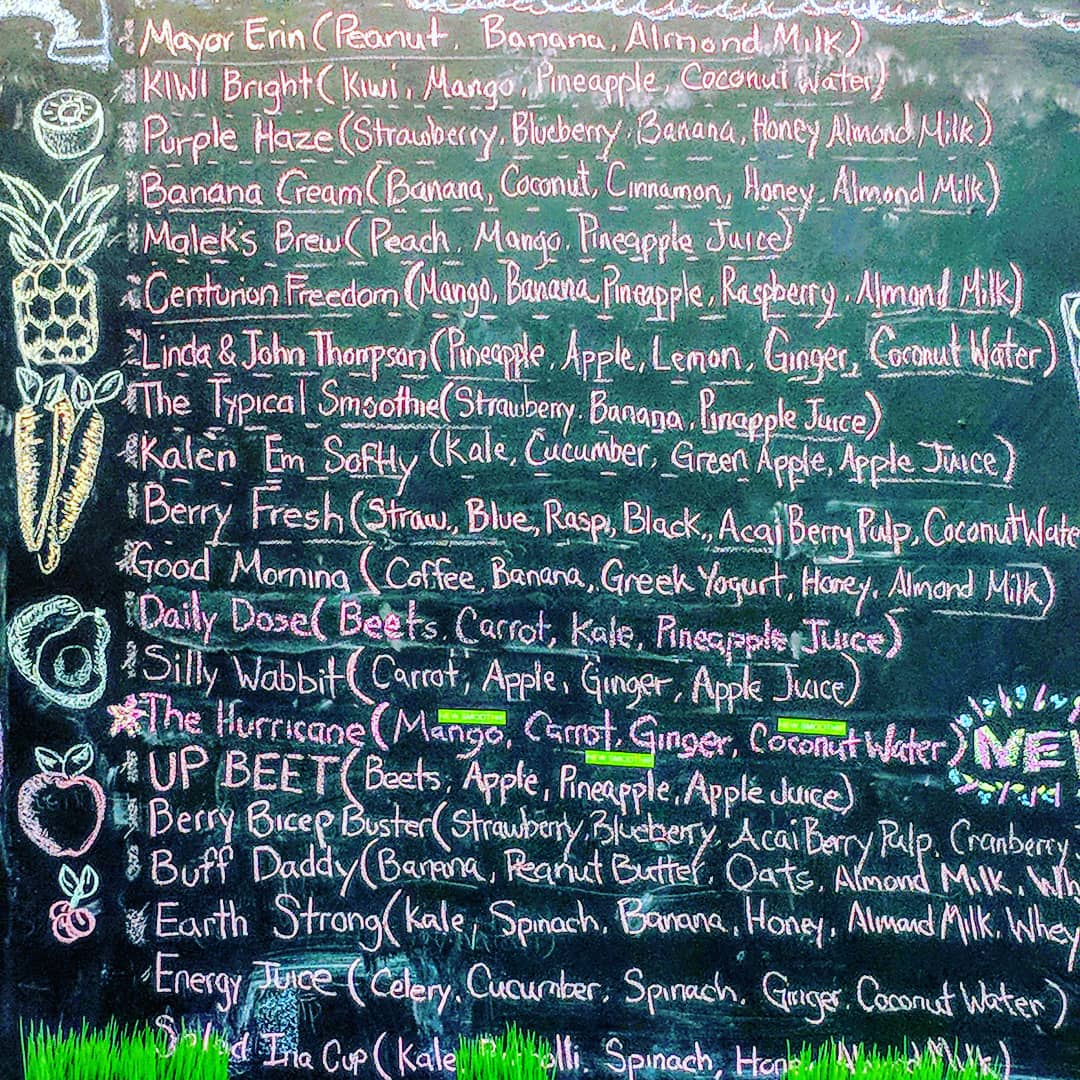 Mayor Erin (Peanut, Banana, Almond Milk)
KIWI Bright (Kiwi, Mango, Pineapple, Coconut Water)
Purple Haze (Strawberry, Blueberry, Banana, Honey Almond Milk)
Banana Cream (Banana, Coconut, Cinnamon, Honey, Almond Milk)
Malek's Brew (Peach, Mango, Pineapple Juice)
Centurion Freedom (Mango, Banana, Pineapple, Raspberry, Almond Milk)
Linda & John Thompson (Pineapple, Apple, Lemon, Ginger, Coconut Water)
The Typical Smoothie (Strawberry, Banana, Pinapple Juice)
Kalen Em Softly (Kale, Cucumber, Green Apple, Apple Juice)
Berry Fresh (Straw., Blue, Rasp, Black., Acai Berry Pulp, Coconut Wate
Good Morning (Coffee, Banana, Greek Yogurt, Honey, Almond Milk)
Daily Dose (Beets, Carrot, Kale, Pineapple Juice)
Silly Wabbit (Carrot, Apple, Ginger, Apple Juice)
The Hurricane (Mango, Carrot, Ginger, Coconut Water) NEW
NEW SMOOTHIE
NEW SMOOTHIE
NEW SMOOTHIE
UP BEET (Beets, Apple, Pineapple, Apple Juice)
Berry Bicep Buster (Strawberry, Blueberry, Acai Berry Pulp, Cranberry
Buff Daddy (Banana, Peanut Butter, Oats, Almond Milk, Wh
Earth Strong (Kale, Spinach, Banana, Honey, Almond Milk, Whey
Energy Juice (Celery, Cucumber, Spinach, Ginger, Coconut Water)
In a Cup (Kale Spinach, Almond Milk)